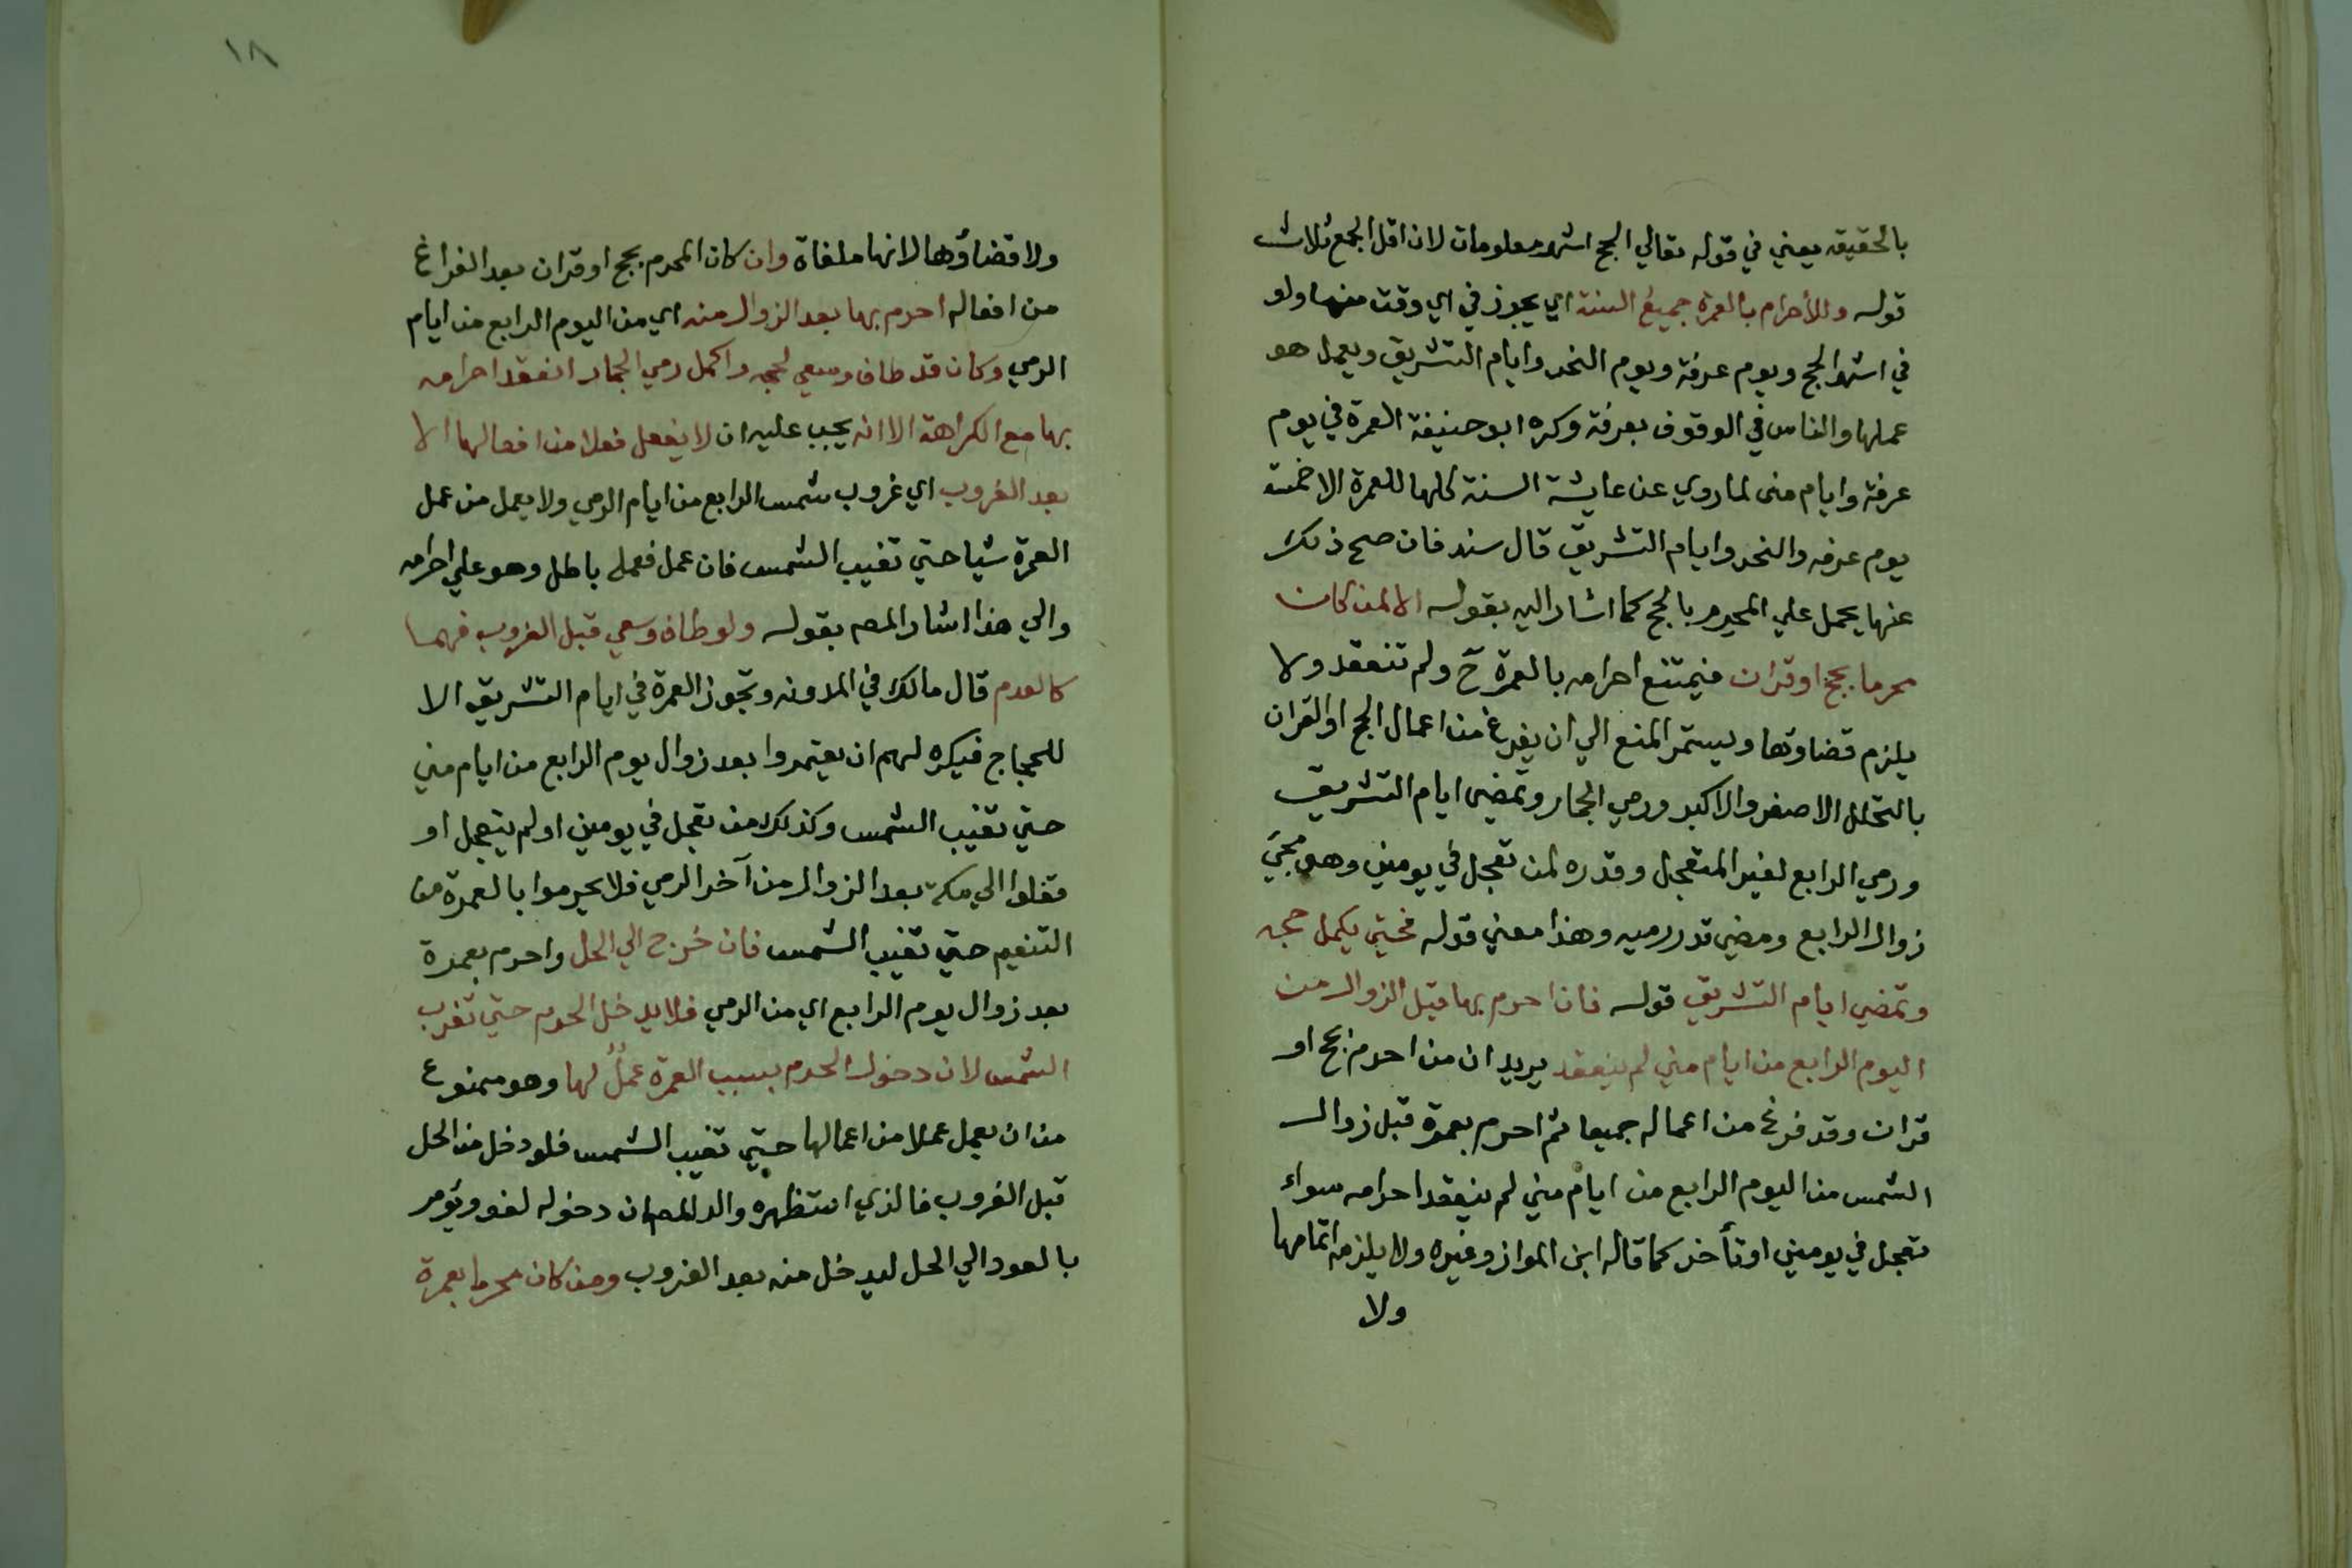 بالحقيقه يعني في قوله تعالي الحج اشهر معلومات لان اقل الجمع ثلاث
قوله وللأحرام بالعمرة جميعُ السنة اي يجوز في اي وقت منها ولو
في اشهر الحج ويوم عرفة ويوم النحر وايام التشريق ويعمل هو
عملها والناس في الوقوف بعرفة وكره ابو حنيفة العمرة في يوم
عرفة وايام منى لما روي عن عايشة السنة كلها للعمرة الا خمسة
يوم عرفه والنحر وايام التشريق قال سند فان صح ذلك
عنها يحمل علي المحرم بالحج كما اشار اليه بقوله الا لمن كان
محرما بحج او قران فيمتنع احرامه بالعمرة ح ولم تنعقد ولا
يلزم قضاوها ويستمر المنع الي ان يفرغ من اعمال الحج او القران
بالتحلل الاصغر والاكبر ورمي الجمار وتمضي ايام التشريق
ورمي الرابع لغير المتعجل وقدره لمن تعجل في يومين وهو مجئ
زوال الرابع ومضي قدر رميه وهذا معني قوله فحتي يكمل حجه
وتمضي ايام التشريق قوله فان احرم بها قبل الزوال من
اليوم الرابع من ايام مني لم ينعقد يريد ان من احرم بحج او
قران وقد فرغ من اعماله جميعا ثم احرم بعمرة قبل زوال
الشمس من اليوم الرابع من ايام مني لم ينعقد احرامه سواء
تعجل في يومين او تأخر كما قاله ابن المواز وغيره ولا يلزمه اتمامها
ولا
١٨
ولا قضاؤها لانها ملغاة وان كان المحرم بحج او قران بعد الفراغ
من افعاله احرم بها بعد الزوال منه اي من اليوم الرابع من ايام
الرمي وكان قد طاف وسعي لحجه واكمل رمي الجمار انعقد احرامه
بها مع الكراهة الا انه يجب عليه ان لا يفعل فعلا من افعالها الا
بعد الغروب اي غروب شمس الرابع من ايام الرمي ولا يعمل من عمل
العمرة شيا حتي تغيب الشمس فان عمل فعمله باطل وهو علي احرامه
والي هذا اشار المصـ بقوله ولو طاف وسعي قبل الغروب فهما
كالعدم قال مالك في المدونه وتجوز العمرة في ايام التشريق الا
للحجاج فيكره لهم ان يعتمروا بعد زوال يوم الرابع من ايام مني
حتي تغيب الشمس وكذلك من تعجل في يومين او لم يتعجل او
قفلوا الي مكة بعد الزوال من آخر الرمي فلا يحرموا بالعمرة من
التنعيم حتي تغيب الشمس فان خرج الي الحل واحرم بعمرة
بعد زوال يوم الرابع اي من الرمي فلا يدخل الحرم حتي تغرب
الشمس لان دخول الحرم بسبب العمرة عملٌ لها وهو ممنوع
من ان يعمل عملا من اعمالها حتي تغيب الشمس فلو دخل من الحل
قبل الغروب فالذي استظهره والد المصـ ان دخوله لغو ويؤمر
بالعود الي الحل ليدخل منه بعد الغروب ومن كان محرما بعمرة